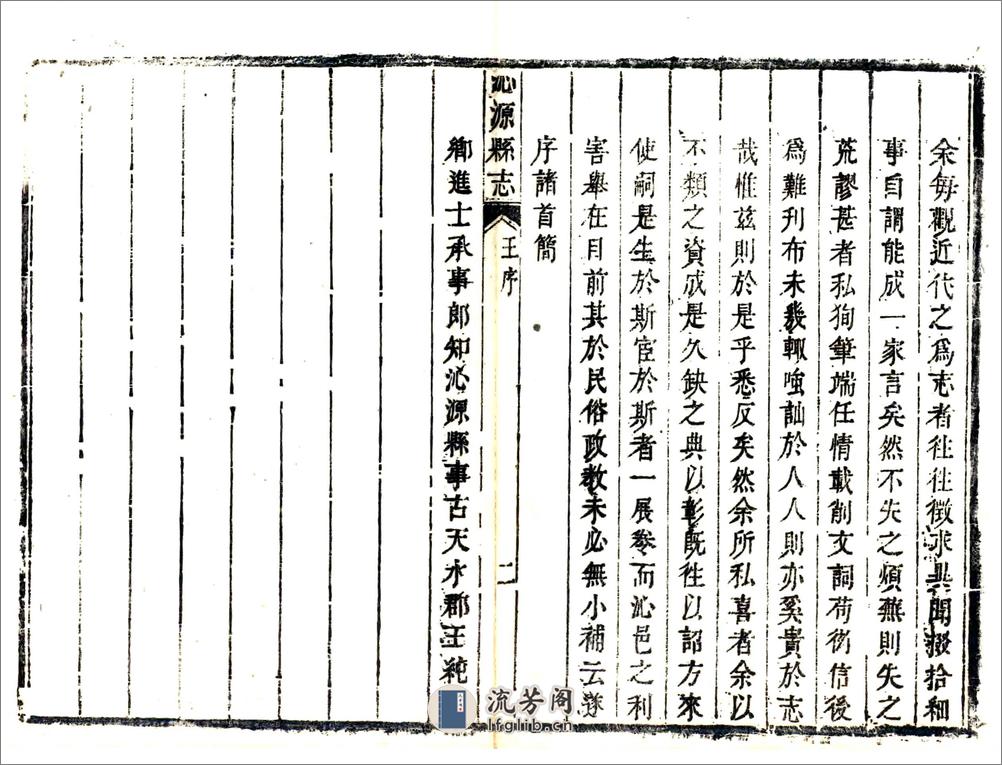 余每觀近代之爲志者往往徵求異聞掇拾細
事自謂能成一家言矣然不失之煩蕪則失之
荒謬甚者私狥筆端任情載削文詞苟衒信後
爲難刋布未幾輒嗤訕於人人則亦奚貴於志
哉惟茲則於是乎悉反矣然余所私喜者余以
不類之資成是久缺之典以彰既徃以詔方來
使嗣是生於斯宦於斯者一展卷而沁邑之利
害舉在目前其於民俗政教未必無小補云遂
序諸首簡
沁源縣志
王序
二
鄉進士承事郎知沁源縣事古天水郡王純
流芳阁
lfglib.cn